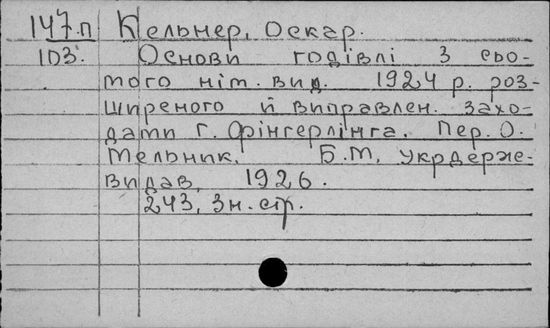 147.п Кельнер, Оскар.
103. Основи годівлі З сьо-
того нім. вид. 1924 р. роз-
ширеного й виправлен. захо-
дами Г. Фінгерлінга. Пер. О.
Мельник. Б.М. Укрдерже-
видав, 1926.
243, Зн. стр.